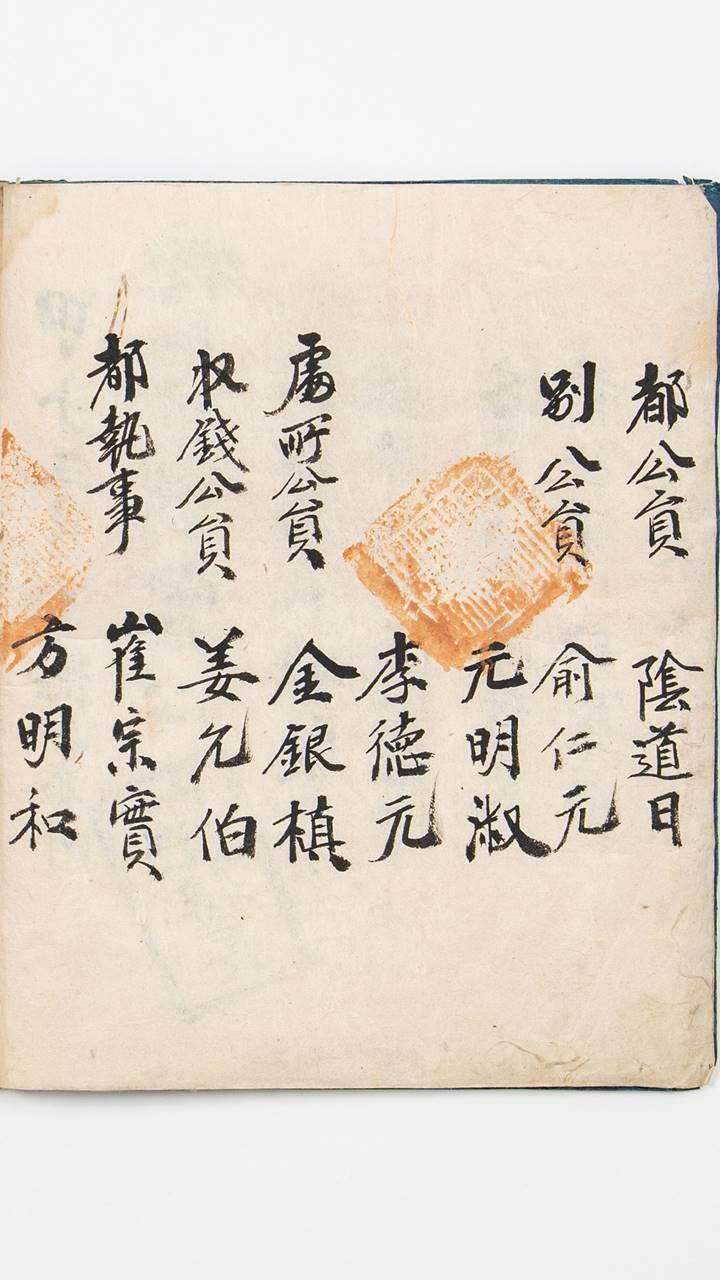 都公員 陰道日
別公員 俞仁元
元明淑
李德元
處所公員 金銀楨
收錢公員 姜允伯
都執事 崔宗實
方明和